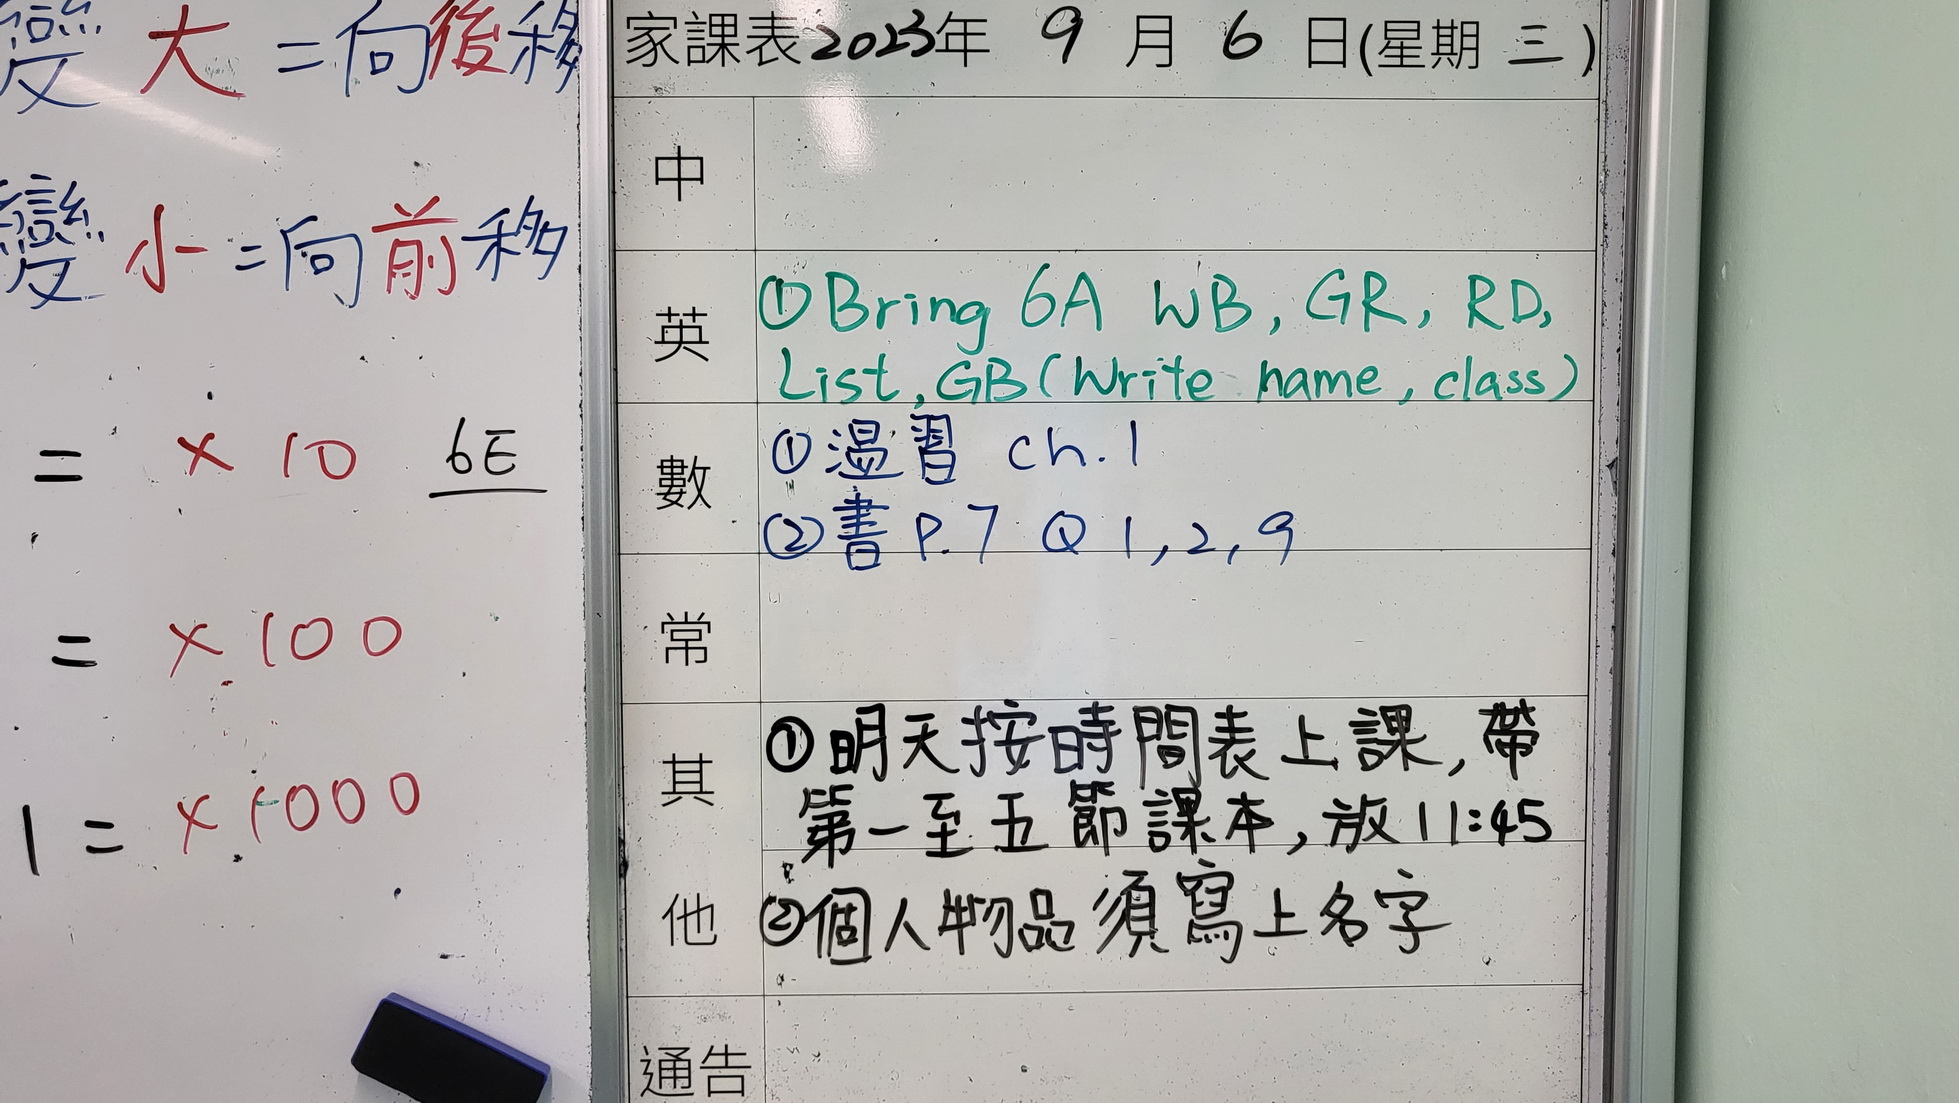 變大=向後移
變小=向前移
= × 10 6E
= × 100
1 = × 1000
家課表2023年 9 月 6 日(星期 三)
中
英
①Bring 6A WB, GR, RD,
List, GB(Write name, class)
數
①溫習 ch.1
②書 P.7 Q 1,2,9
常
其他
①明天按時間表上課,帶
第一至五節課本,放11:45
②個人物品須寫上名字
通告